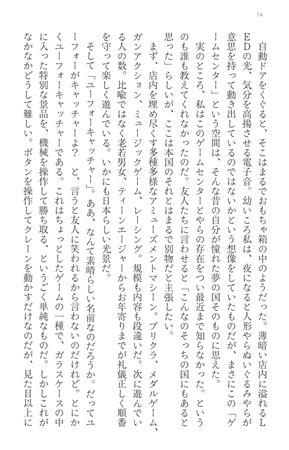 74
自動ドアをくぐると、そこはまるでおもちゃ箱の中のようだった。薄暗い店内に溢れるL
EDの光、気分を高揚させる電子音。幼いころ私は、夜になると人形やらぬいぐるみやらが
意思を持って動き出しているのではないかという想像をしていたものだが、まさにこの「ゲ
ームセンター」という空間は、そんな昔の自分が憧れた夢の国そのものに思えた。
実のところ、私はこのゲームセンターとやらの存在をつい最近まで知らなかった。という
のも誰も教えてくれなかったのだ。友人たちに言わせると「こんなのそっちの国にもあると
思った」らしいが、ここは本国のそれとはまるで別物だと主張したい。
まず、店内を埋め尽くす多種多様なアミューズメント・マシーン。プリクラ、メダルゲーム、
ガンアクション、ミュージックゲーム、レーシング。規模も内容も段違いだ。次に遊んでい
る人の数。比喩ではなく老若男女、ティーンエージャーからお年寄りまでが礼儀正しく順番
を守って楽しく遊んでいる。いかにも日本らしい光景だ。
そして「ユーフォーキャッチャー」。ああ、なんて素晴らしい名前なのだろうか。だってユ
ーフォーがキャッチャーよ？　と、言うと友人に笑われるから言わないのだけれど。とにか
くユーフォーキャッチャーである。これはちょっとしたゲームの一種で、ガラスケースの中
に入った特別な景品を、機械を操作して勝ち取る、というごく単純なものだ。しかしこれが
なかなかどうして難しい。ボタンを操作してクレーンを動かすだけなのだが、見た目以上に